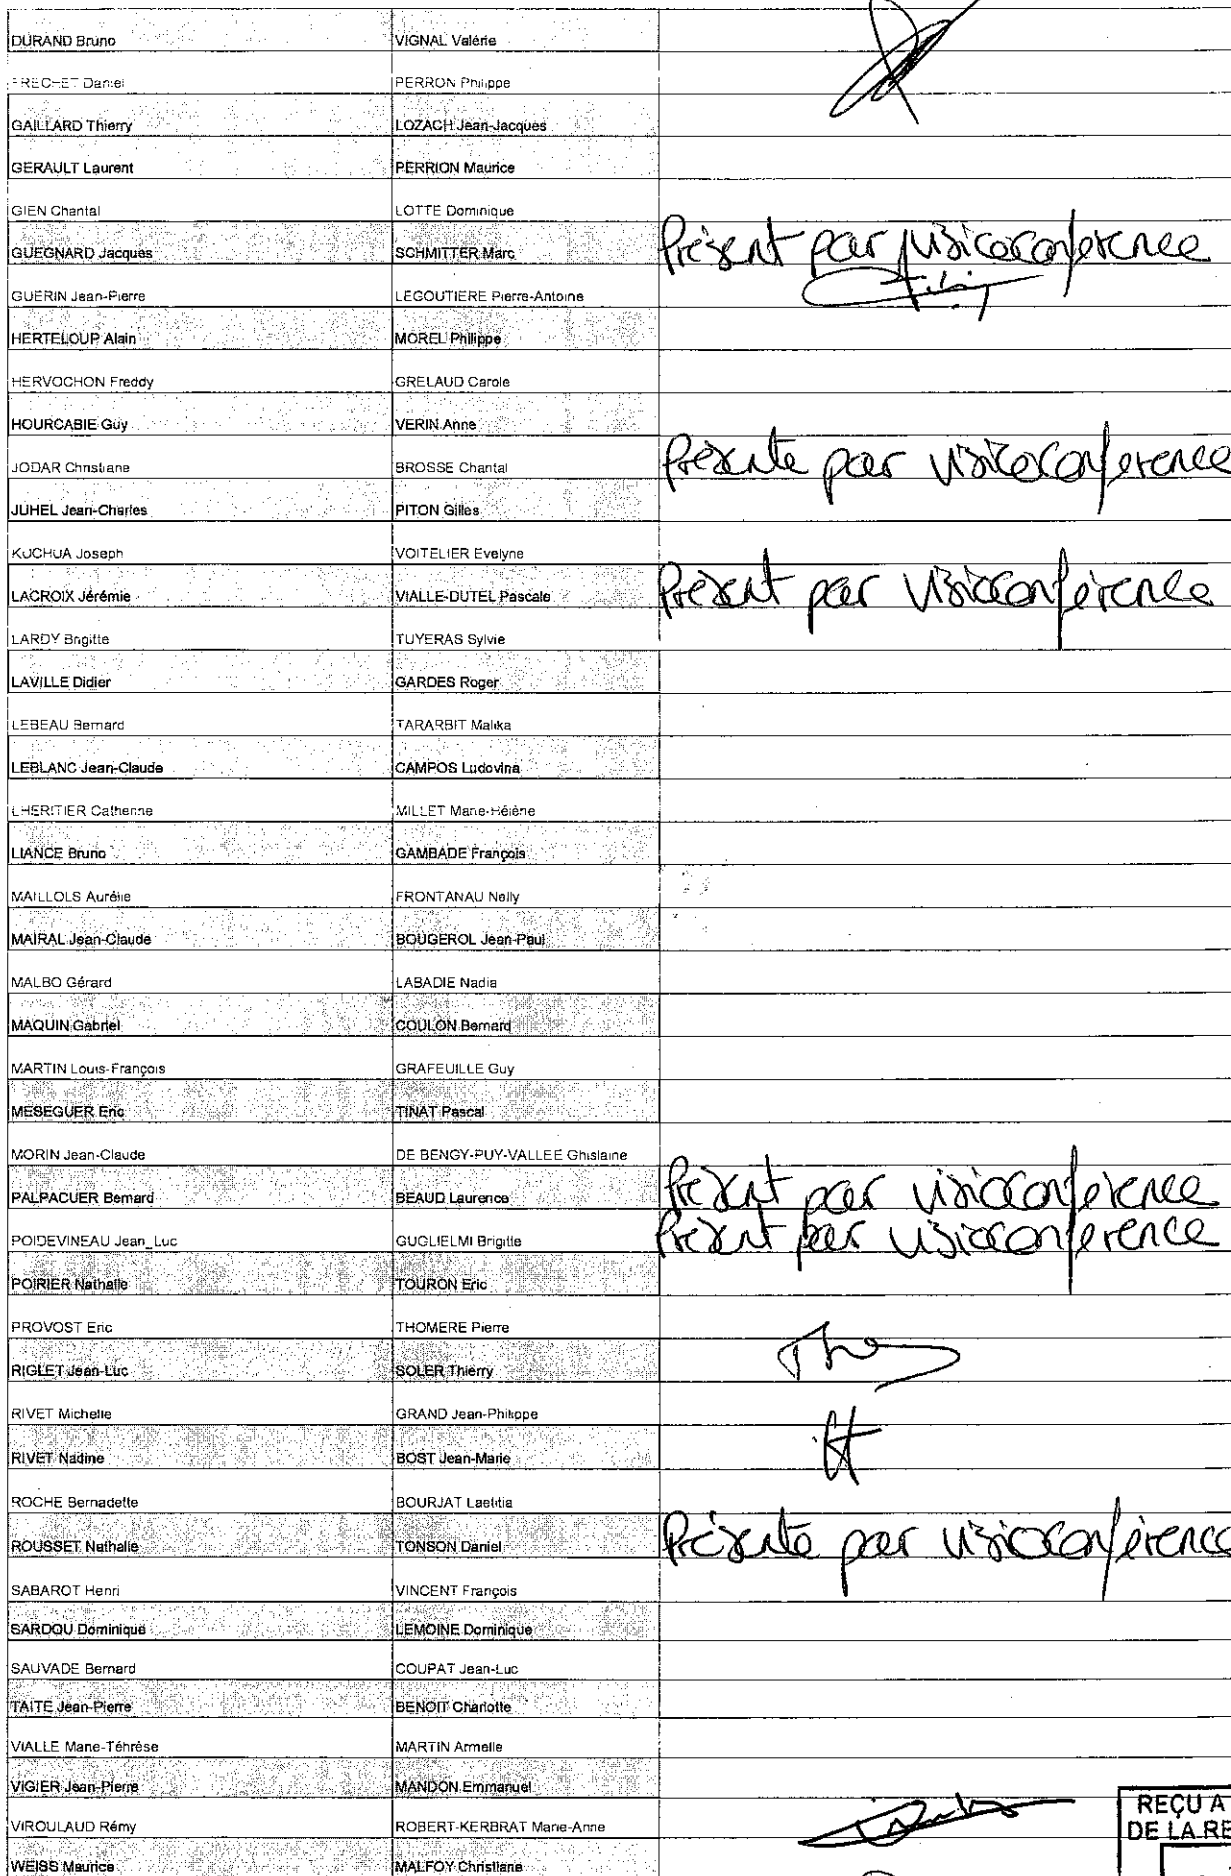 DURAND Bruno VIGNAL Valérie
FRECHET Daniel PERRON Philippe
GAILLARD Thierry LOZACH Jean-Jacques
GERAULT Laurent PERRION Maurice
GIEN Chantal LOTTE Dominique
GUEGNARD Jacques SCHMITTER Marc Présent par visioconférence
GUERIN Jean-Pierre LEGOUTIERE Pierre-Antoine
HERTELOUP Alain MOREL Philippe
HERVOCHON Freddy GRELAUD Carole
HOURCABIE Guy VERIN Anne
JODAR Christiane BROSSE Chantal Présente par visioconférence
JUHEL Jean-Charles PITON Gilles
KUCHUA Joseph VOITELIER Evelyne
LACROIX Jérémie VIALLE-DUTEL Pascale Présent par visioconférence
LARDY Brigitte TUYERAS Sylvie
LAVILLE Didier GARDES Roger
LEBEAU Bernard TARARBIT Malika
LEBLANC Jean-Claude CAMPOS Ludovina
LHERITIER Catherine MILLET Marie-Hélène
LIANCE Bruno GAMBADE François
MAILLOLS Aurélie FRONTANAU Nelly
MAIRAL Jean-Claude BOUGEROL Jean-Paul
MALBO Gérard LABADIE Nadia
MAQUIN Gabriel COULON Bernard
MARTIN Louis-François GRAFEUILLE Guy
MESEGUER Eric TINAT Pascal
MORIN Jean-Claude DE BENGY-PUY-VALLEE Ghislaine
PALPACUER Bernard BEAUD Laurence Présent par visioconférence
POIDEVINEAU Jean_Luc GUGLIELMI Brigitte Présent par visioconférence
POIRIER Nathalie TOURON Eric
PROVOST Eric THOMERE Pierre
RIGLET Jean-Luc SOLER Thierry
RIVET Michelle GRAND Jean-Philippe
RIVET Nadine BOST Jean-Marie
ROCHE Bernadette BOURJAT Laetitia
ROUSSET Nathalie TONSON Daniel Présente par visioconférence
SABAROT Henri VINCENT François
SARDOU Dominique LEMOINE Dominique
SAUVADE Bernard COUPAT Jean-Luc
TAITE Jean-Pierre BENOIT Charlotte
VIALLE Marie-Téhrèse MARTIN Armelle
VIGIER Jean-Pierre MANDON Emmanuel
VIROULAUD Rémy ROBERT-KERBRAT Marie-Anne
WEISS Maurice MALFOY Christiane
REÇU A
DE LA RE